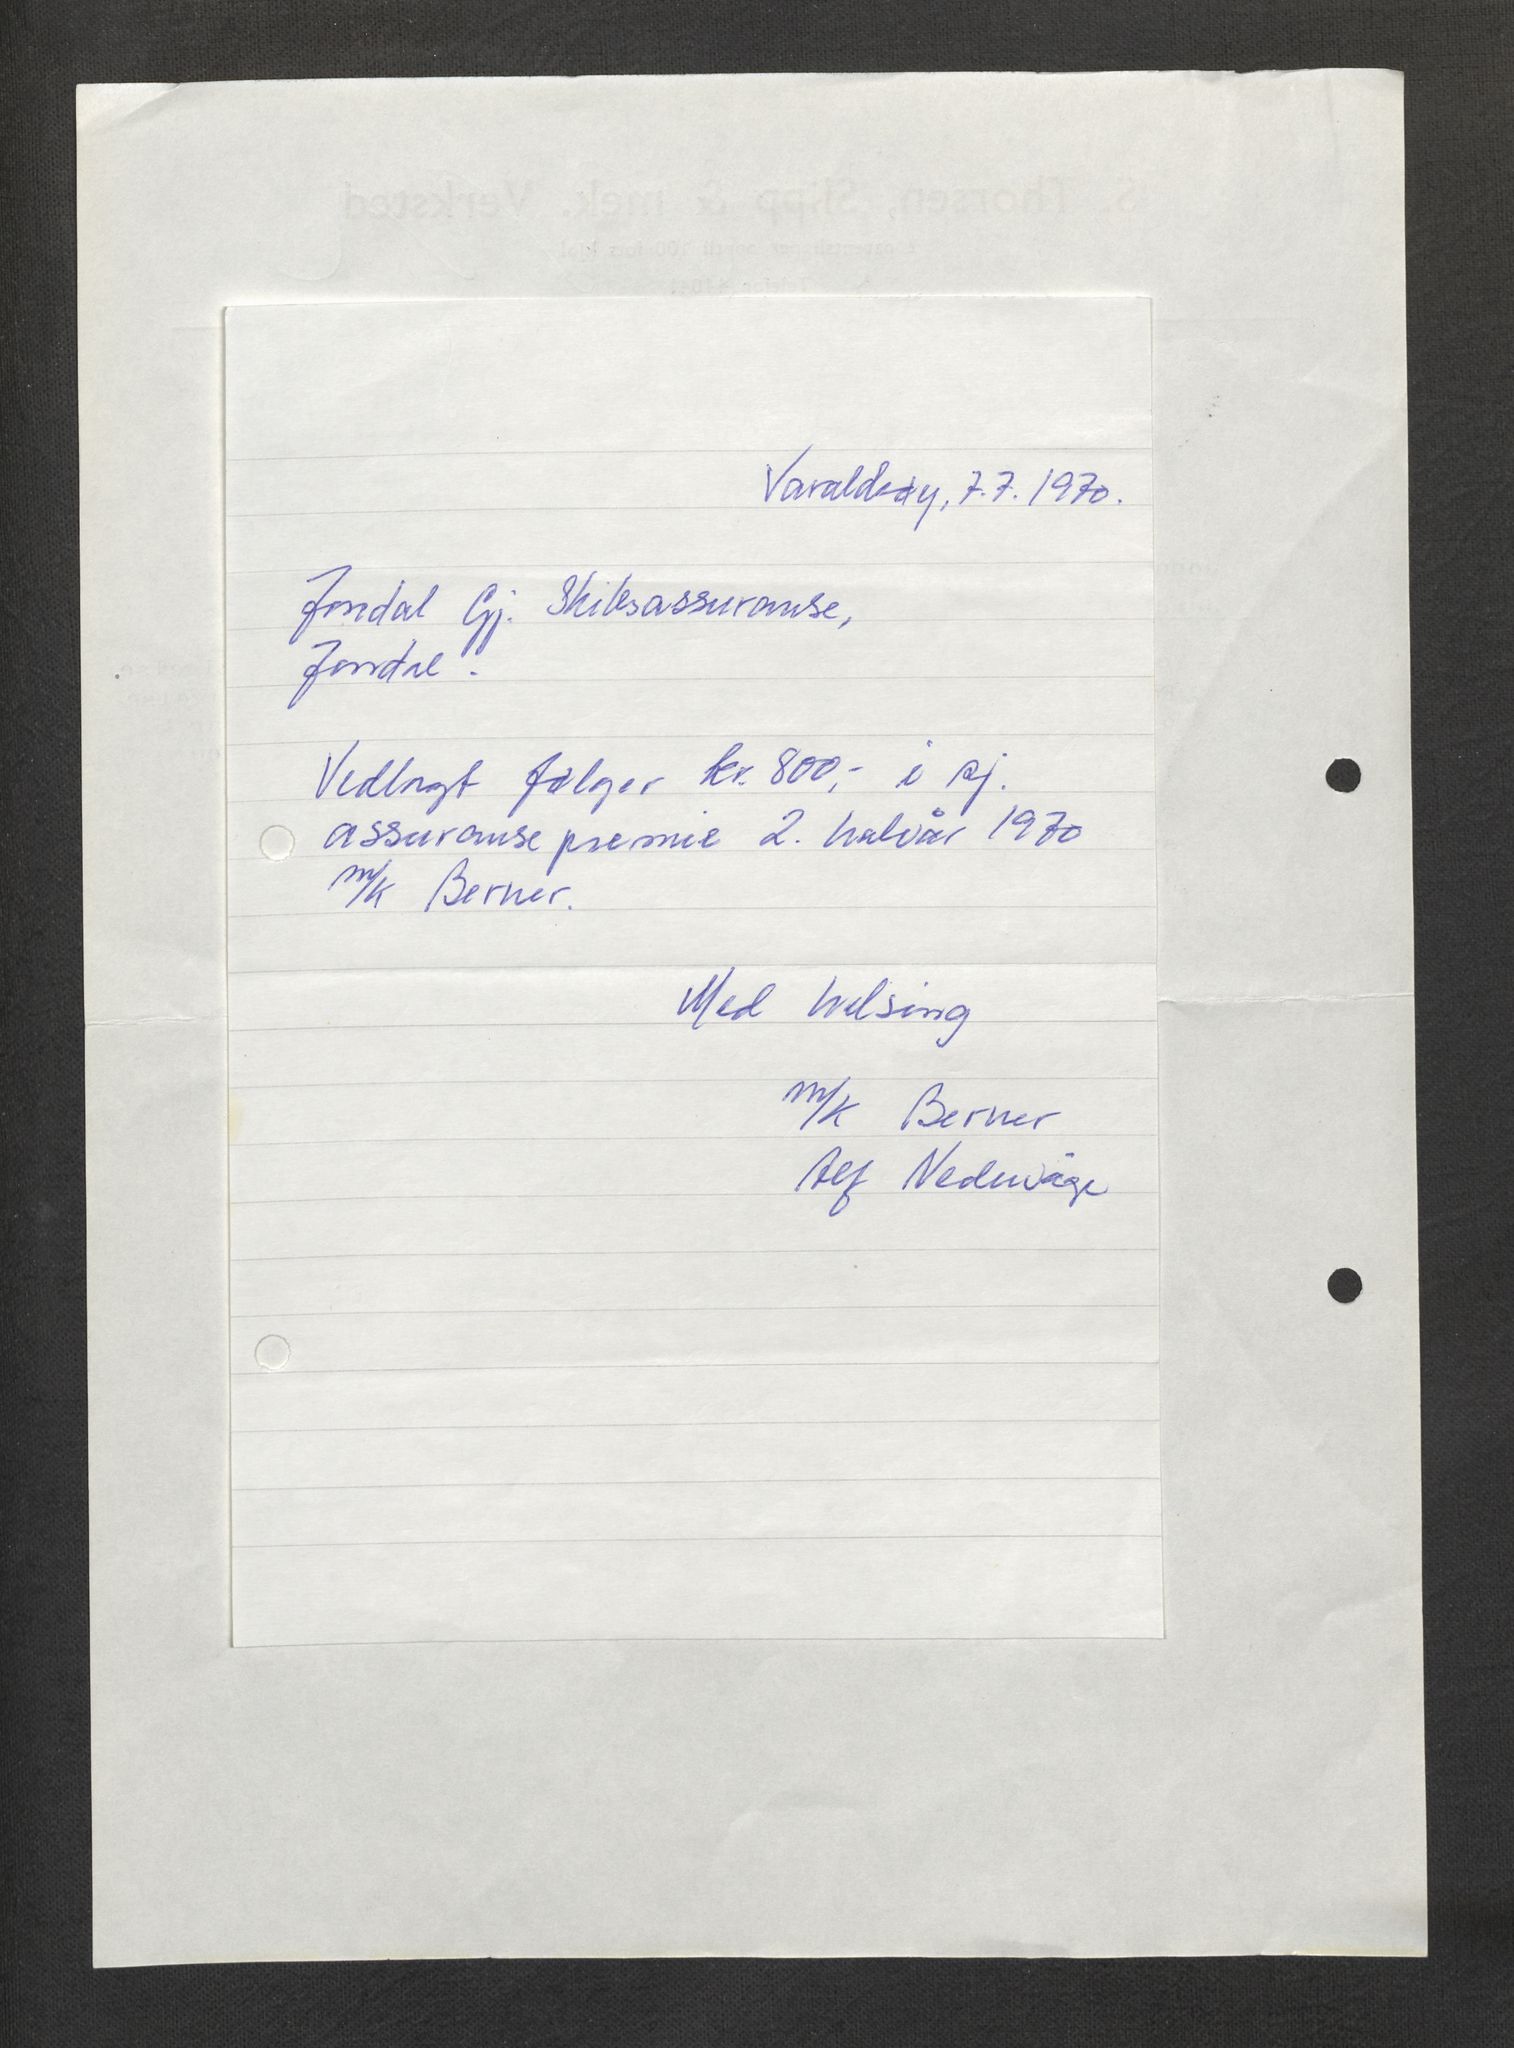 S. Thorsen, Slipp & mek. Verksted
Varaldsøy, 7.7. 1970.
Jondal Gj. Skibsassuranse,
Jondal.
Vedlagt følger kr. 800,- i sj.
assuransepremie 2. halvår 1970
m/k Berner.
Med helsing
m/k Berner
Alf Nedrevåge